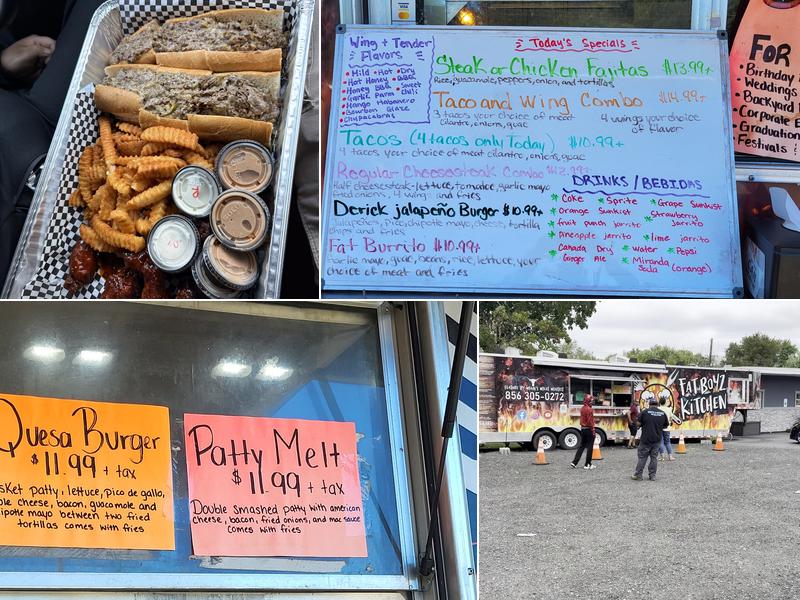 Wing + Tender
Flavors
• Mild • Hot • Dry
• Hot Honey • BBQ
• Honey BBQ • Sweet
• Garlic Parm • Chili
• Mango Habanero
• Bourbon Glaze
• Chupacabras
Today's Specials
Steak or Chicken Fajitas $13.99+
Rice, guacamole, peppers, onion, and tortillas
Taco and Wing Combo $14.99+
3 tacos your choice of meat
cilantro, onions, guac
4 wings your choice
of flavor
Tacos (4 tacos only Today) $10.99+
4 tacos your choice of meat cilantro, onions, guac
Regular Cheesesteak Combo
Half cheesesteak - lettuce, tomatoe, garlic mayo
fried onions, 4 wings and fries
Derick jalapeño Burger $10.99+
Jalapeños, pico, chipotle mayo, cheese, tortilla
chips and fries
Fat Burrito $10.99+
garlic mayo, guac, beans, rice, lettuce, your
choice of meat and fries
DRINKS / BEBIDAS
* Coke * Sprite * Grape Sunkist
* Orange Sunkist * Strawberry
Jarrito
* fruit punch jarrito
* Pineapple jarrito * lime jarrito
* Canada Dry
Ginger Ale
* water * Pepsi
* Miranda
Soda (orange)
FOR
• Birthday
• Weddings
• Backyard
• Corporate
• Graduation
• Festivals
Quesa Burger
$11.99 + tax
patty, lettuce, pico de gallo,
cheese, bacon, guacamole and
mayo between two fried
tortillas comes with fries
Patty Melt
$11.99 + tax
Double smashed patty with american
cheese, bacon, fried onions, and mac sauce
comes with fries
856 305-0272
FATBOYZ
KITCHEN